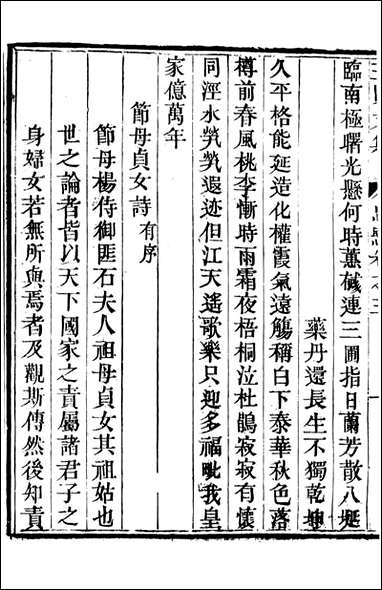 臨南極曙光懸何時蕙鹹連三圃指日蘭芳散八埏
藥丹還長生不獨乾坤
久平格能延造化權霞氣遠觴稱白下泰華秋色落
樽前春風桃李慚時雨霜夜梧桐泣杜鵑寂寂有懷
同涇水煢煢遐迹但江天遙歌樂只迎多福毗我皇
家億萬年
節母貞女詩有序
節母楊侍御匪石夫人祖母貞女其祖姑也
世之論者皆以天下國家之責屬諸君子之
身婦女若無所與焉者及觀斯傳然後知責